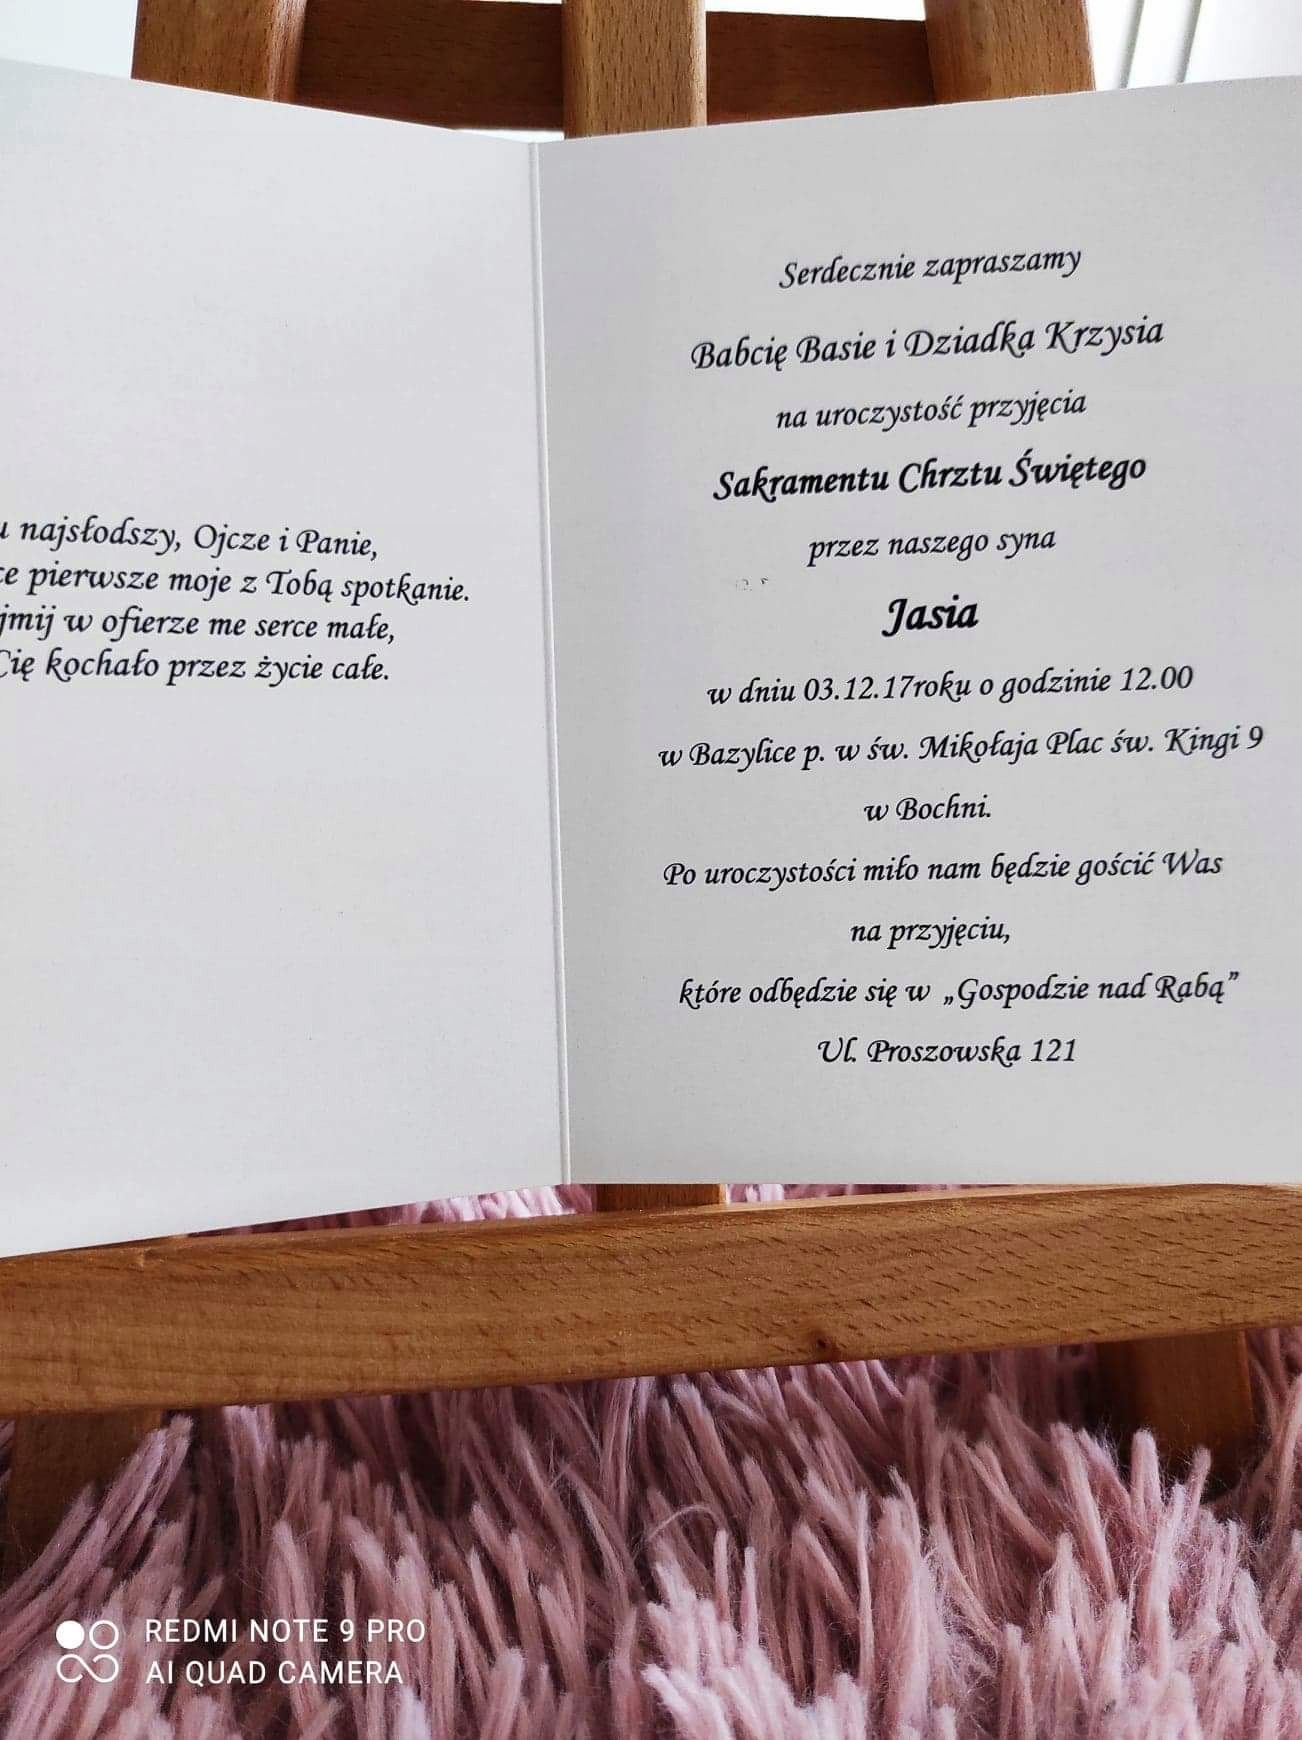 najsłodszy, Ojcze i Panie,
pierwsze moje z Tobą spotkanie.
w ofierze me serce małe,
Cię kochało przez życie całe.
Serdecznie zapraszamy
Babcię Basie i Dziadka Krzysia
na uroczystość przyjęcia
Sakramentu Chrztu Świętego
przez naszego syna
Jasia
w dniu 03.12.17roku o godzinie 12.00
w Bazylice p. w św. Mikołaja Plac św. Kingi 9
w Bochni.
Po uroczystości miło nam będzie gościć Was
na przyjęciu,
które odbędzie się w „Gospodzie nad Rabą”
Ul. Proszowska 121
REDMI NOTE 9 PRO
AI QUAD CAMERA